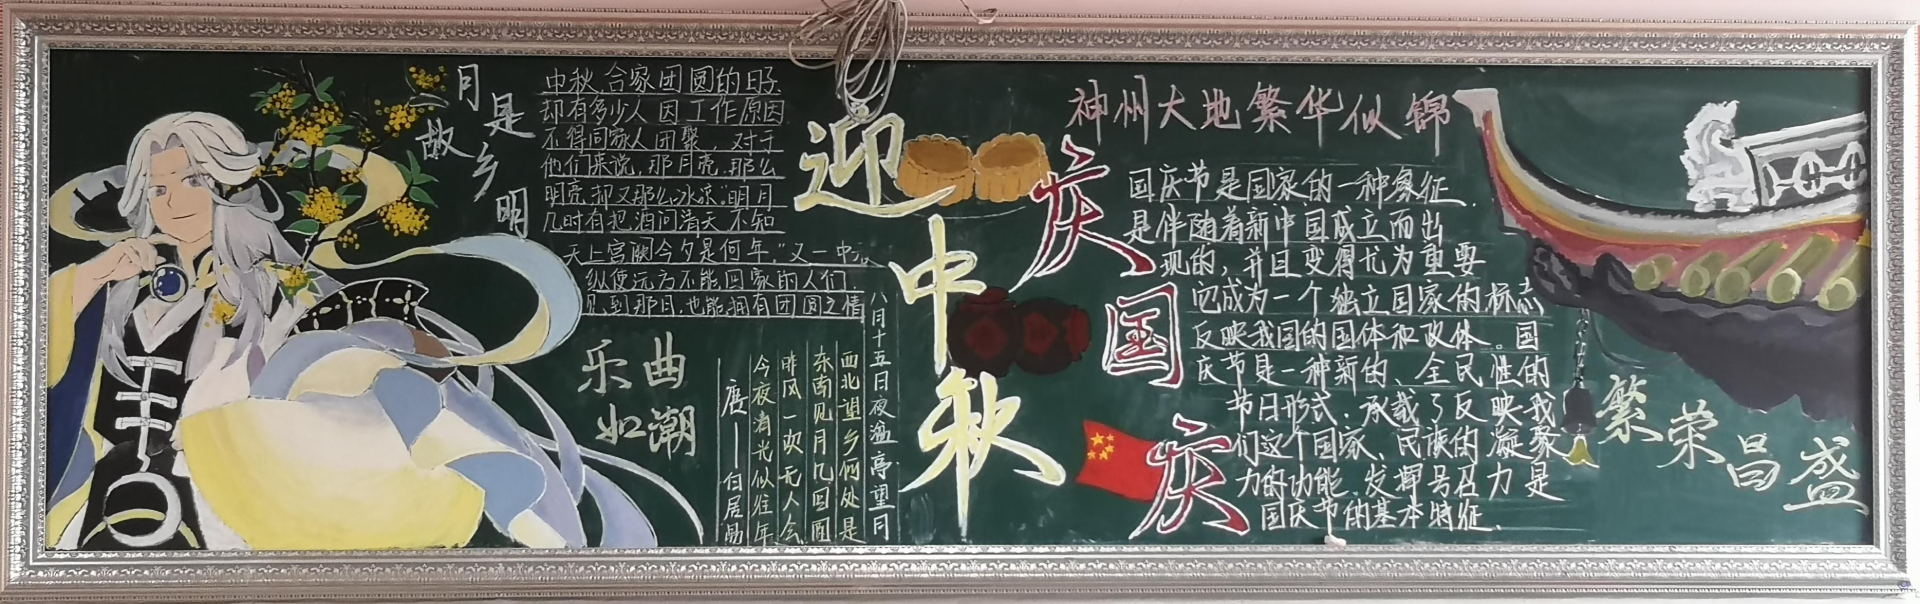 月是
故乡明
中秋,合家团圆的日子
却有多少人因工作原因
不得同家人团聚。对于
他们来说,那月亮,那么
明亮却又那么冰凉。"明月
几时有把酒问清天不知
天上宫阙今夕是何年。"又一中
纵使远方不能回家的人们,
见到那月,也能拥有团圆之情
乐曲
如潮
八月十五日夜湓亭望月
西北望乡何处是
东南见月几回圆
昨风一吹无人会
今夜清光似往年
唐——白居易
迎中秋
庆国庆
神州大地繁华似锦
国庆节是国家的一种象征,
是伴随着新中国成立而出
现的,并且变得尤为重要
它成为一个独立国家的标志
反映我国的国体和政体。国
庆节是一种新的、全民性的
节日形式,承载了反映我
们这个国家、民族的凝聚
力的功能,发挥号召力是
国庆节的基本特征.
繁荣昌盛